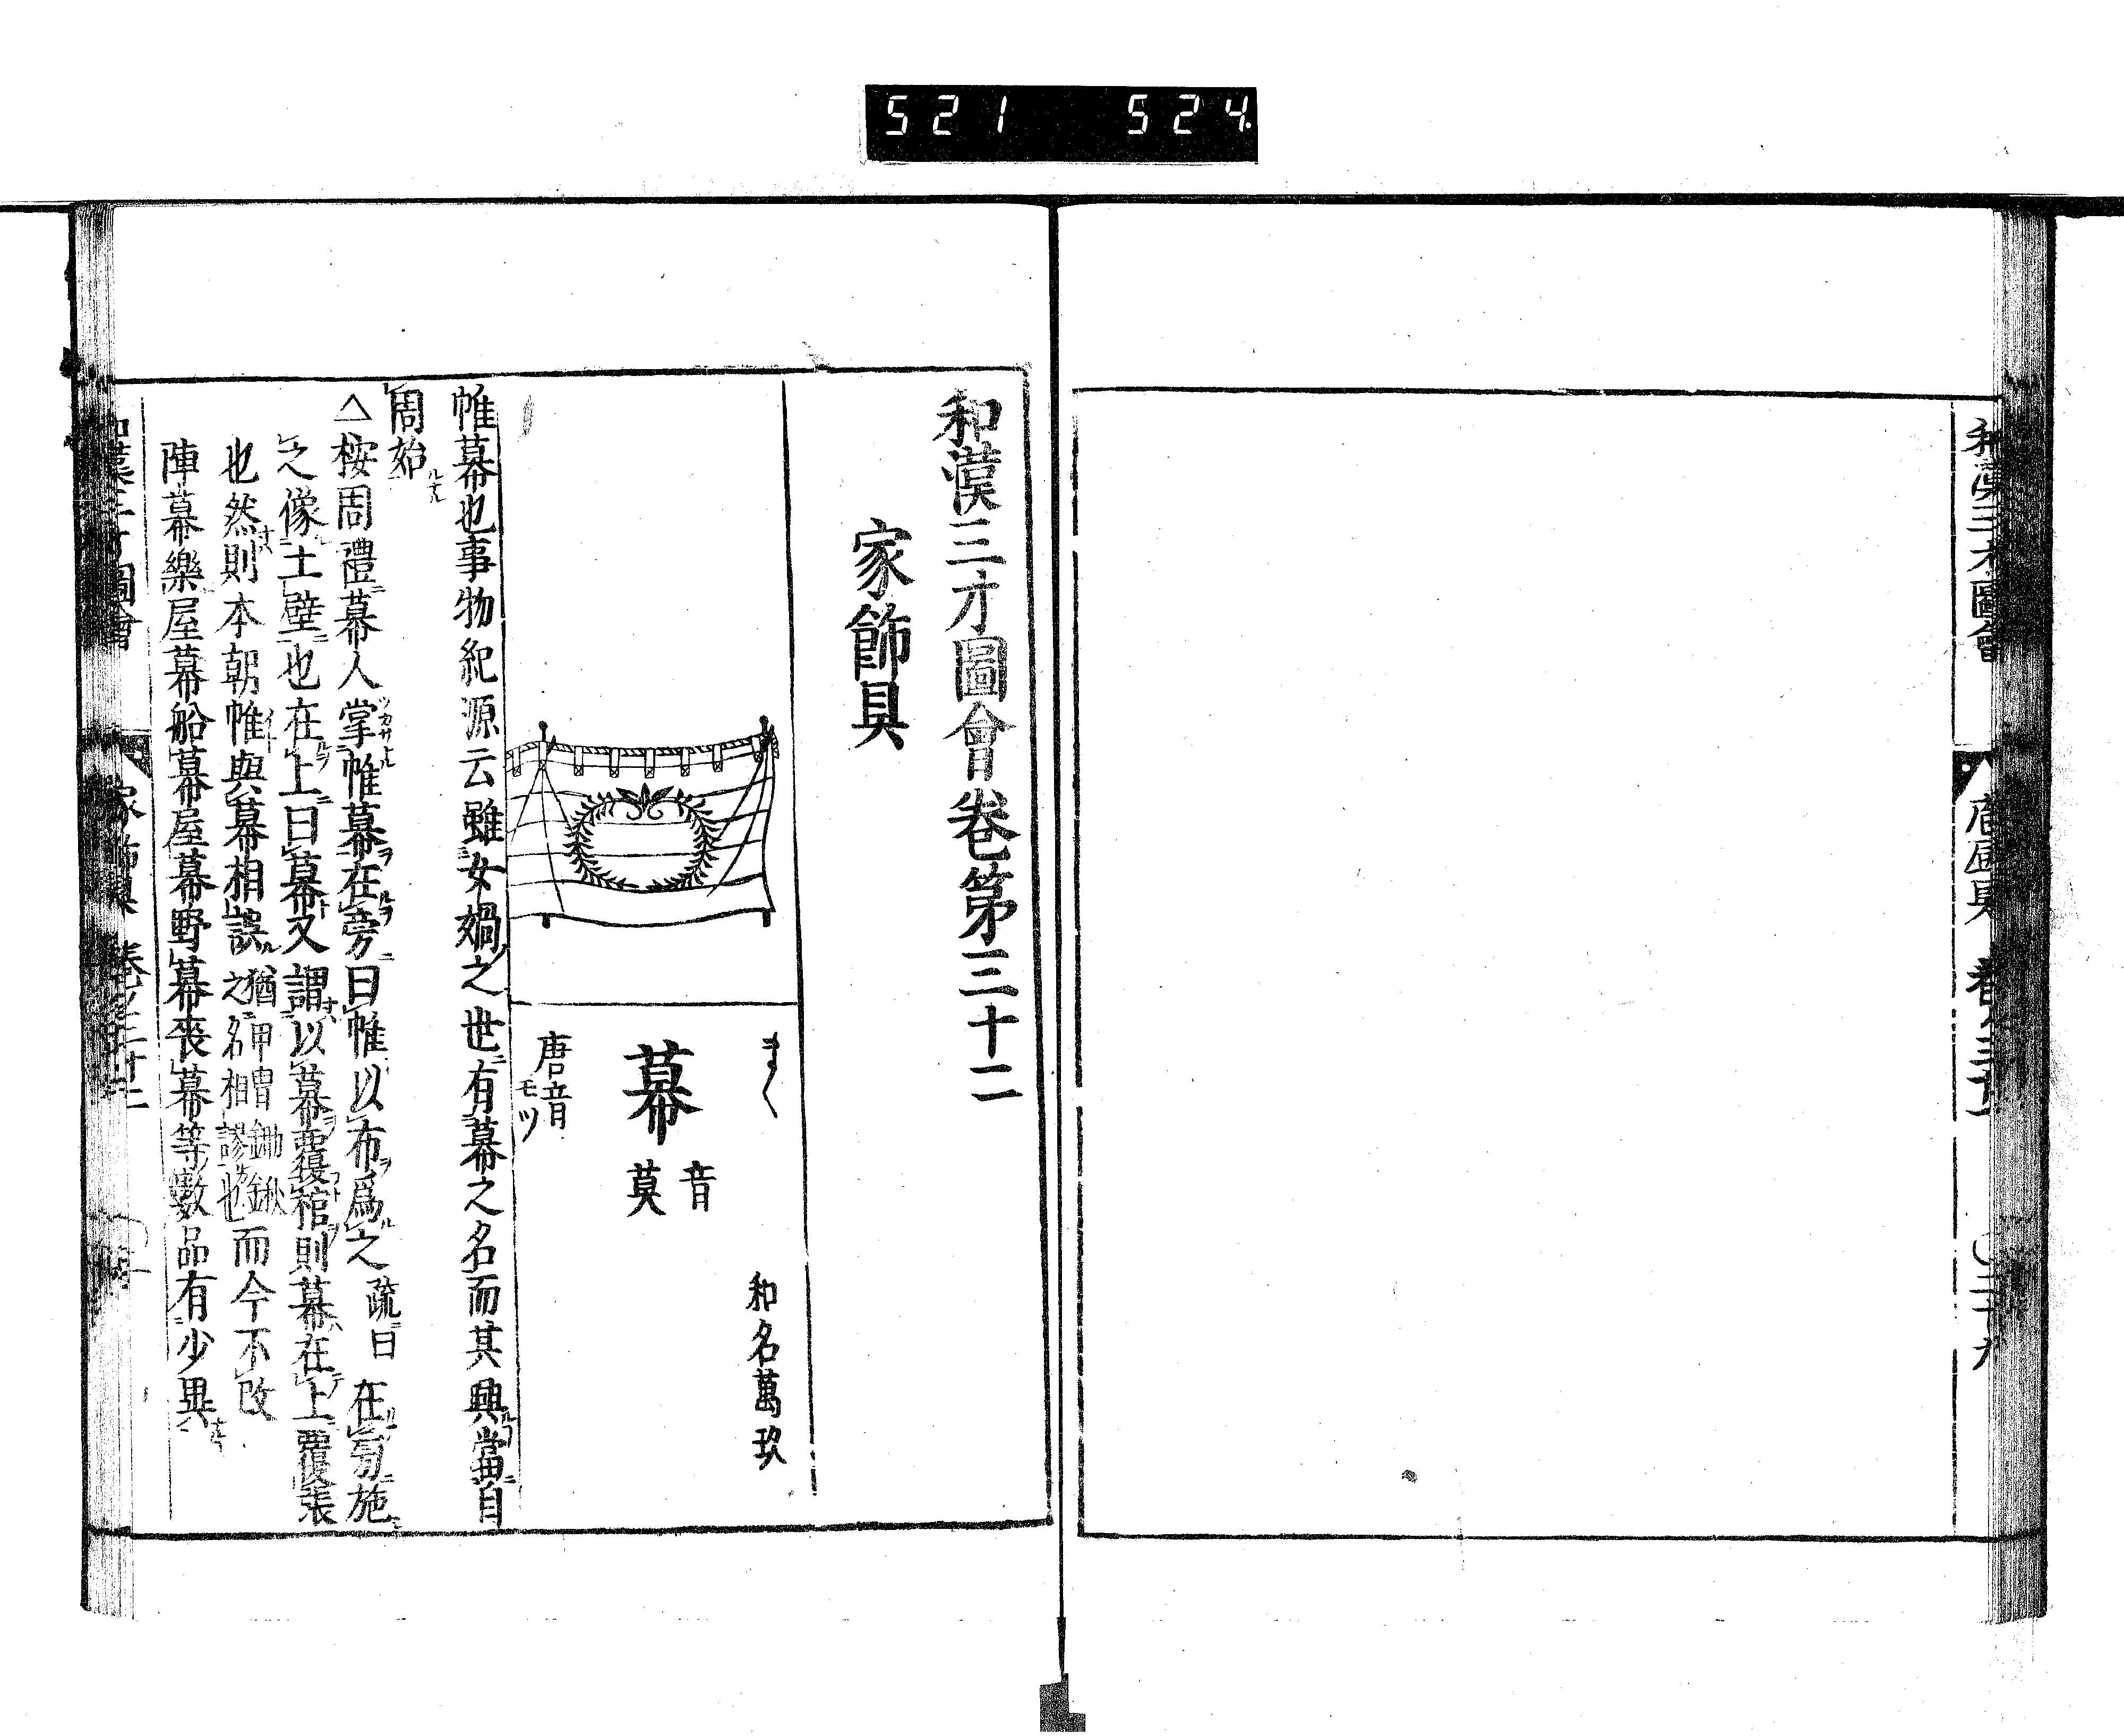 521 524
和漢三才圖會
卷之三十一
和漢三才圖會卷第三十二
家飾具
まく
和名萬玖
幕
音
莫
唐音
モツ
帷幕也事物紀源云雖女媧之世有幕之名而其興當自
周始
△按周禮幕人掌帷幕在旁曰帷以布爲之疏曰在旁施
之像土壁也在上曰幕又謂以幕覆棺則幕在上覆張
也然則本朝帷與幕相誤猶甲冑鋤鍬之名相謬也而今不改
陣幕樂屋幕船幕屋幕野幕喪幕等數品有少異
家飾具 卷之三十二